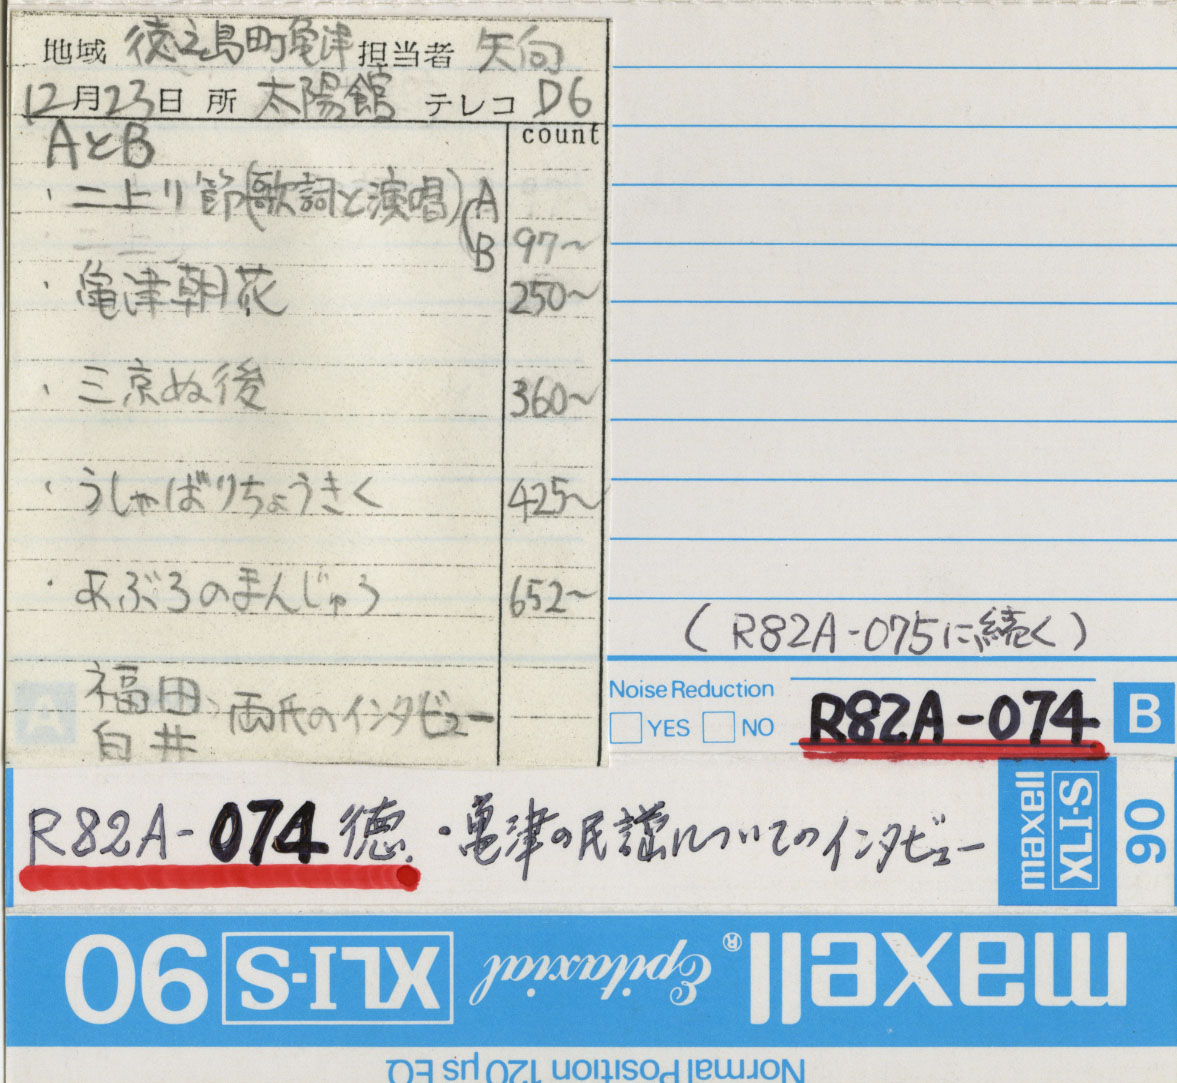 地域 徳之島町亀津 担当者 矢向
12月23日 所 太陽館 テレコ D6
count
AとB
・二上り節(歌詞と演唱) A
B 97〜
・亀津朝花 250〜
・三京ぬ後 360〜
・うしゃばりちょうきく 425〜
・あぶろのまんじゅう 652〜
福田
白井 両氏のインタビュー
A
(R82A-075に続く)
Noise Reduction
YES NO
R82A-074
B
R82A-074 徳.・亀津の民謡についてのインタビュー
maxell
XLI-S
90
maxell® Epitaxial XLI-S 90
Normal Position 120 μs EQ